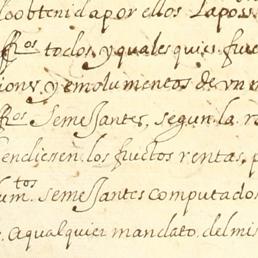 obtenida por ellos La poss
ff.ros todos, y quales quier fruc
ions, y emolumentos de vn
ff.ros Semejantes, segun la r
endiesen los fructos rentas, p
um.tos semejantes computados
aqualquier mandato, del mis